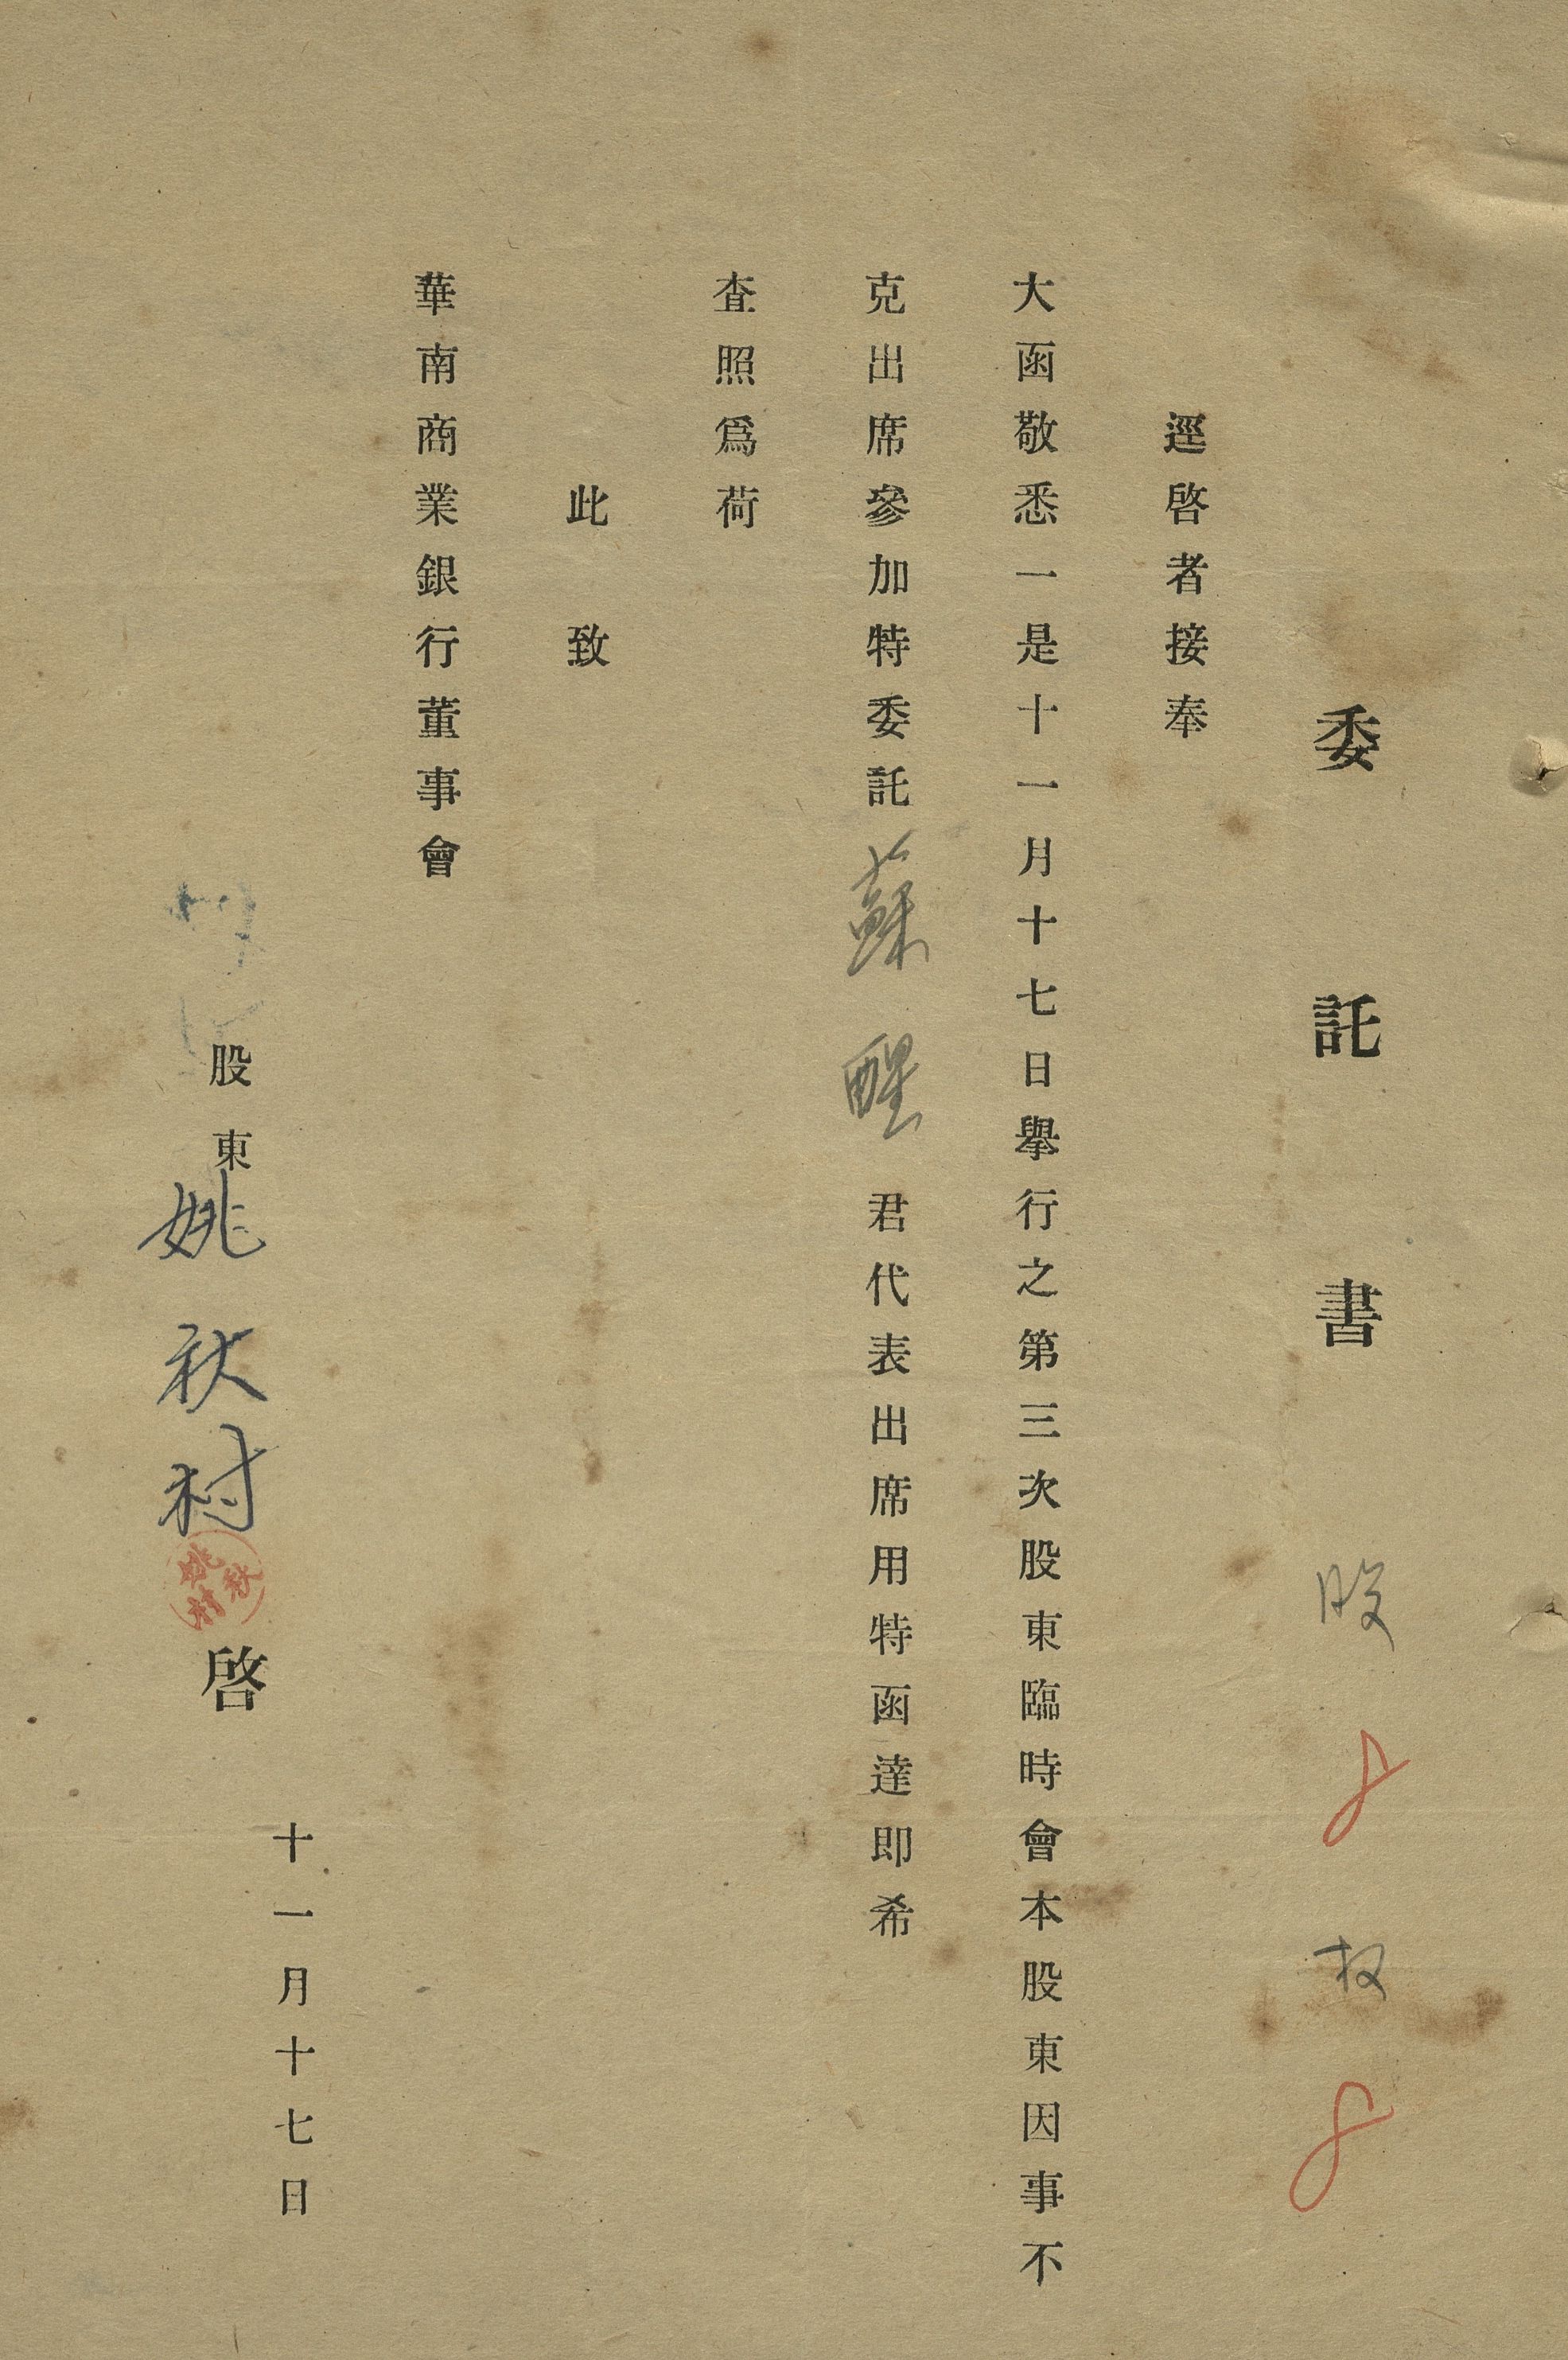 委託書 股 8 权 8
逕啓者接奉
大函敬悉一是十一月十七日舉行之第三次股東臨時會本股東因事不
克出席參加特委託蘇醒君代表出席用特函達即希
査照爲荷
此致
華南商業銀行董事會
十一月十七日
股東姚秋村啓
姚秋村